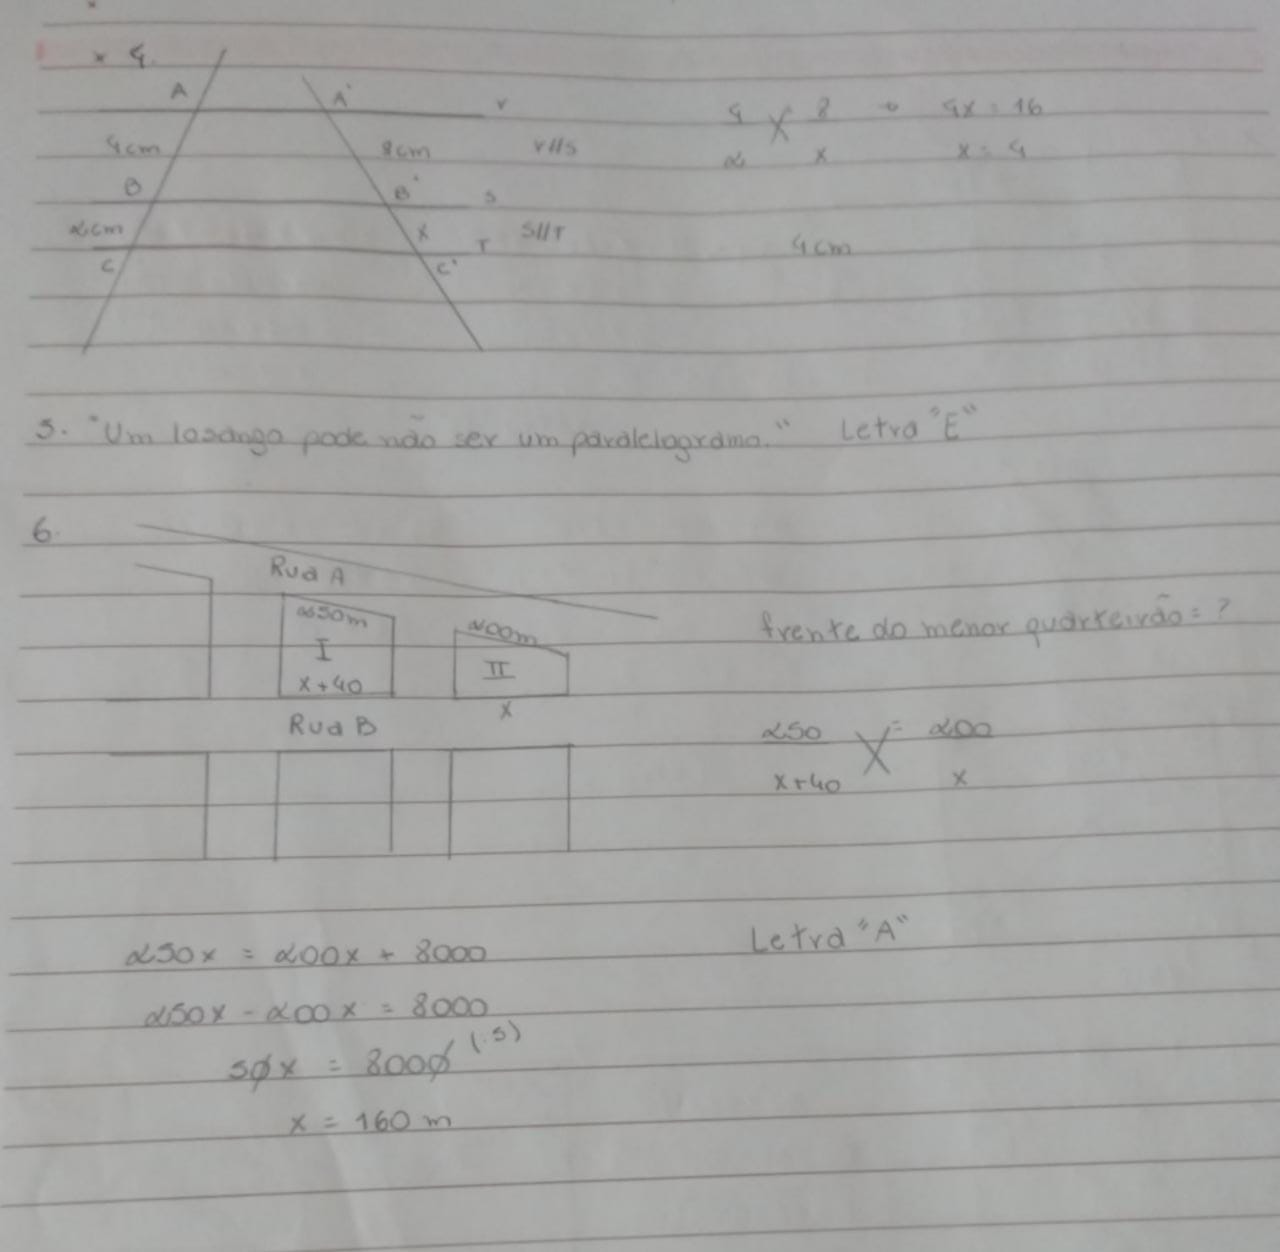 x 4.
A A' r
4cm 8cm r//s
B B' s
2cm x s//r
C C' T
4 8 → 4x = 16
2 x x = 4
4cm
5. "Um losango pode não ser um paralelogramo." Letra "E"
6.
Rua A
250m 200m
I II
x+40 x
Rua B
frente do menor quarteirão = ?
250 = 200
x+40 x
250x = 200x + 8000
250x - 200x = 8000
50x = 8000 (:5)
x = 160 m
Letra "A"